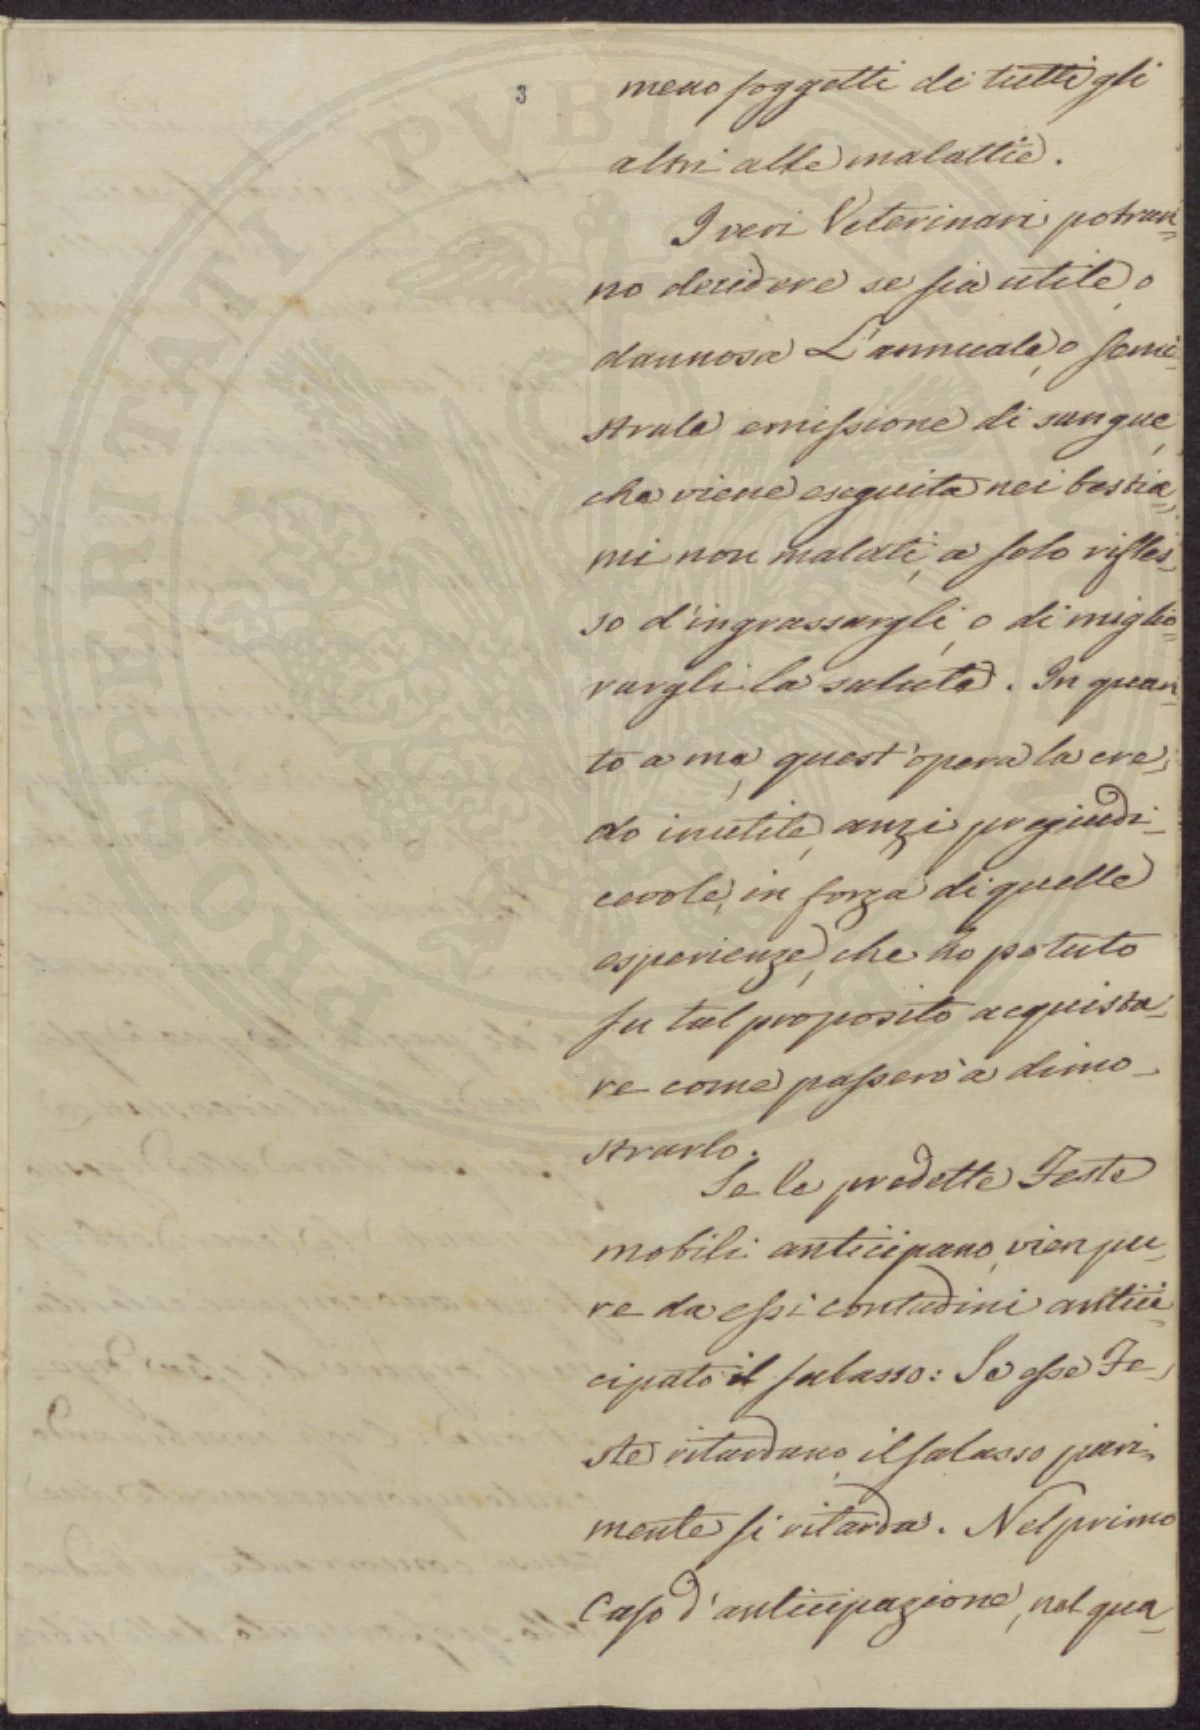 3
meno soggetti di tutti gli
altri alle malattie.
I veri Veterinari potran=
no decidere se sia utile, o
dannosa L'annuale, o seme=
strale emissione di sangue,
che viene eseguita nei bestia=
mi non malati, a solo rifles=
so d'ingrassargli, o di miglio=
rargli la salute. In quan=
to a me, quest'opera la cre=
do inutile, anzi pregiudi=
cevole, in forza di quelle
esperienze, che ho potuto
su tal proposito acquista=
re come passerò a dimo=
strarlo.
Se le predette Feste
mobili anticipano, vien pu=
re da essi contadini antici=
cipato il salasso: Se esse Fe=
ste ritardano, il salasso pari=
mente si ritarda. Nel primo
Caso d'anticipazione, nel qua=
PROSPERITATI PVBLICAE